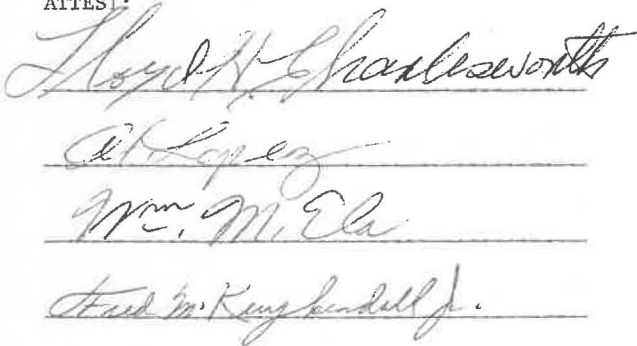 ATTEST:
Lloyd H. Charlesworth
Al Lopez
Wm. M. Ela
Fred M. Kuykendall Jr.